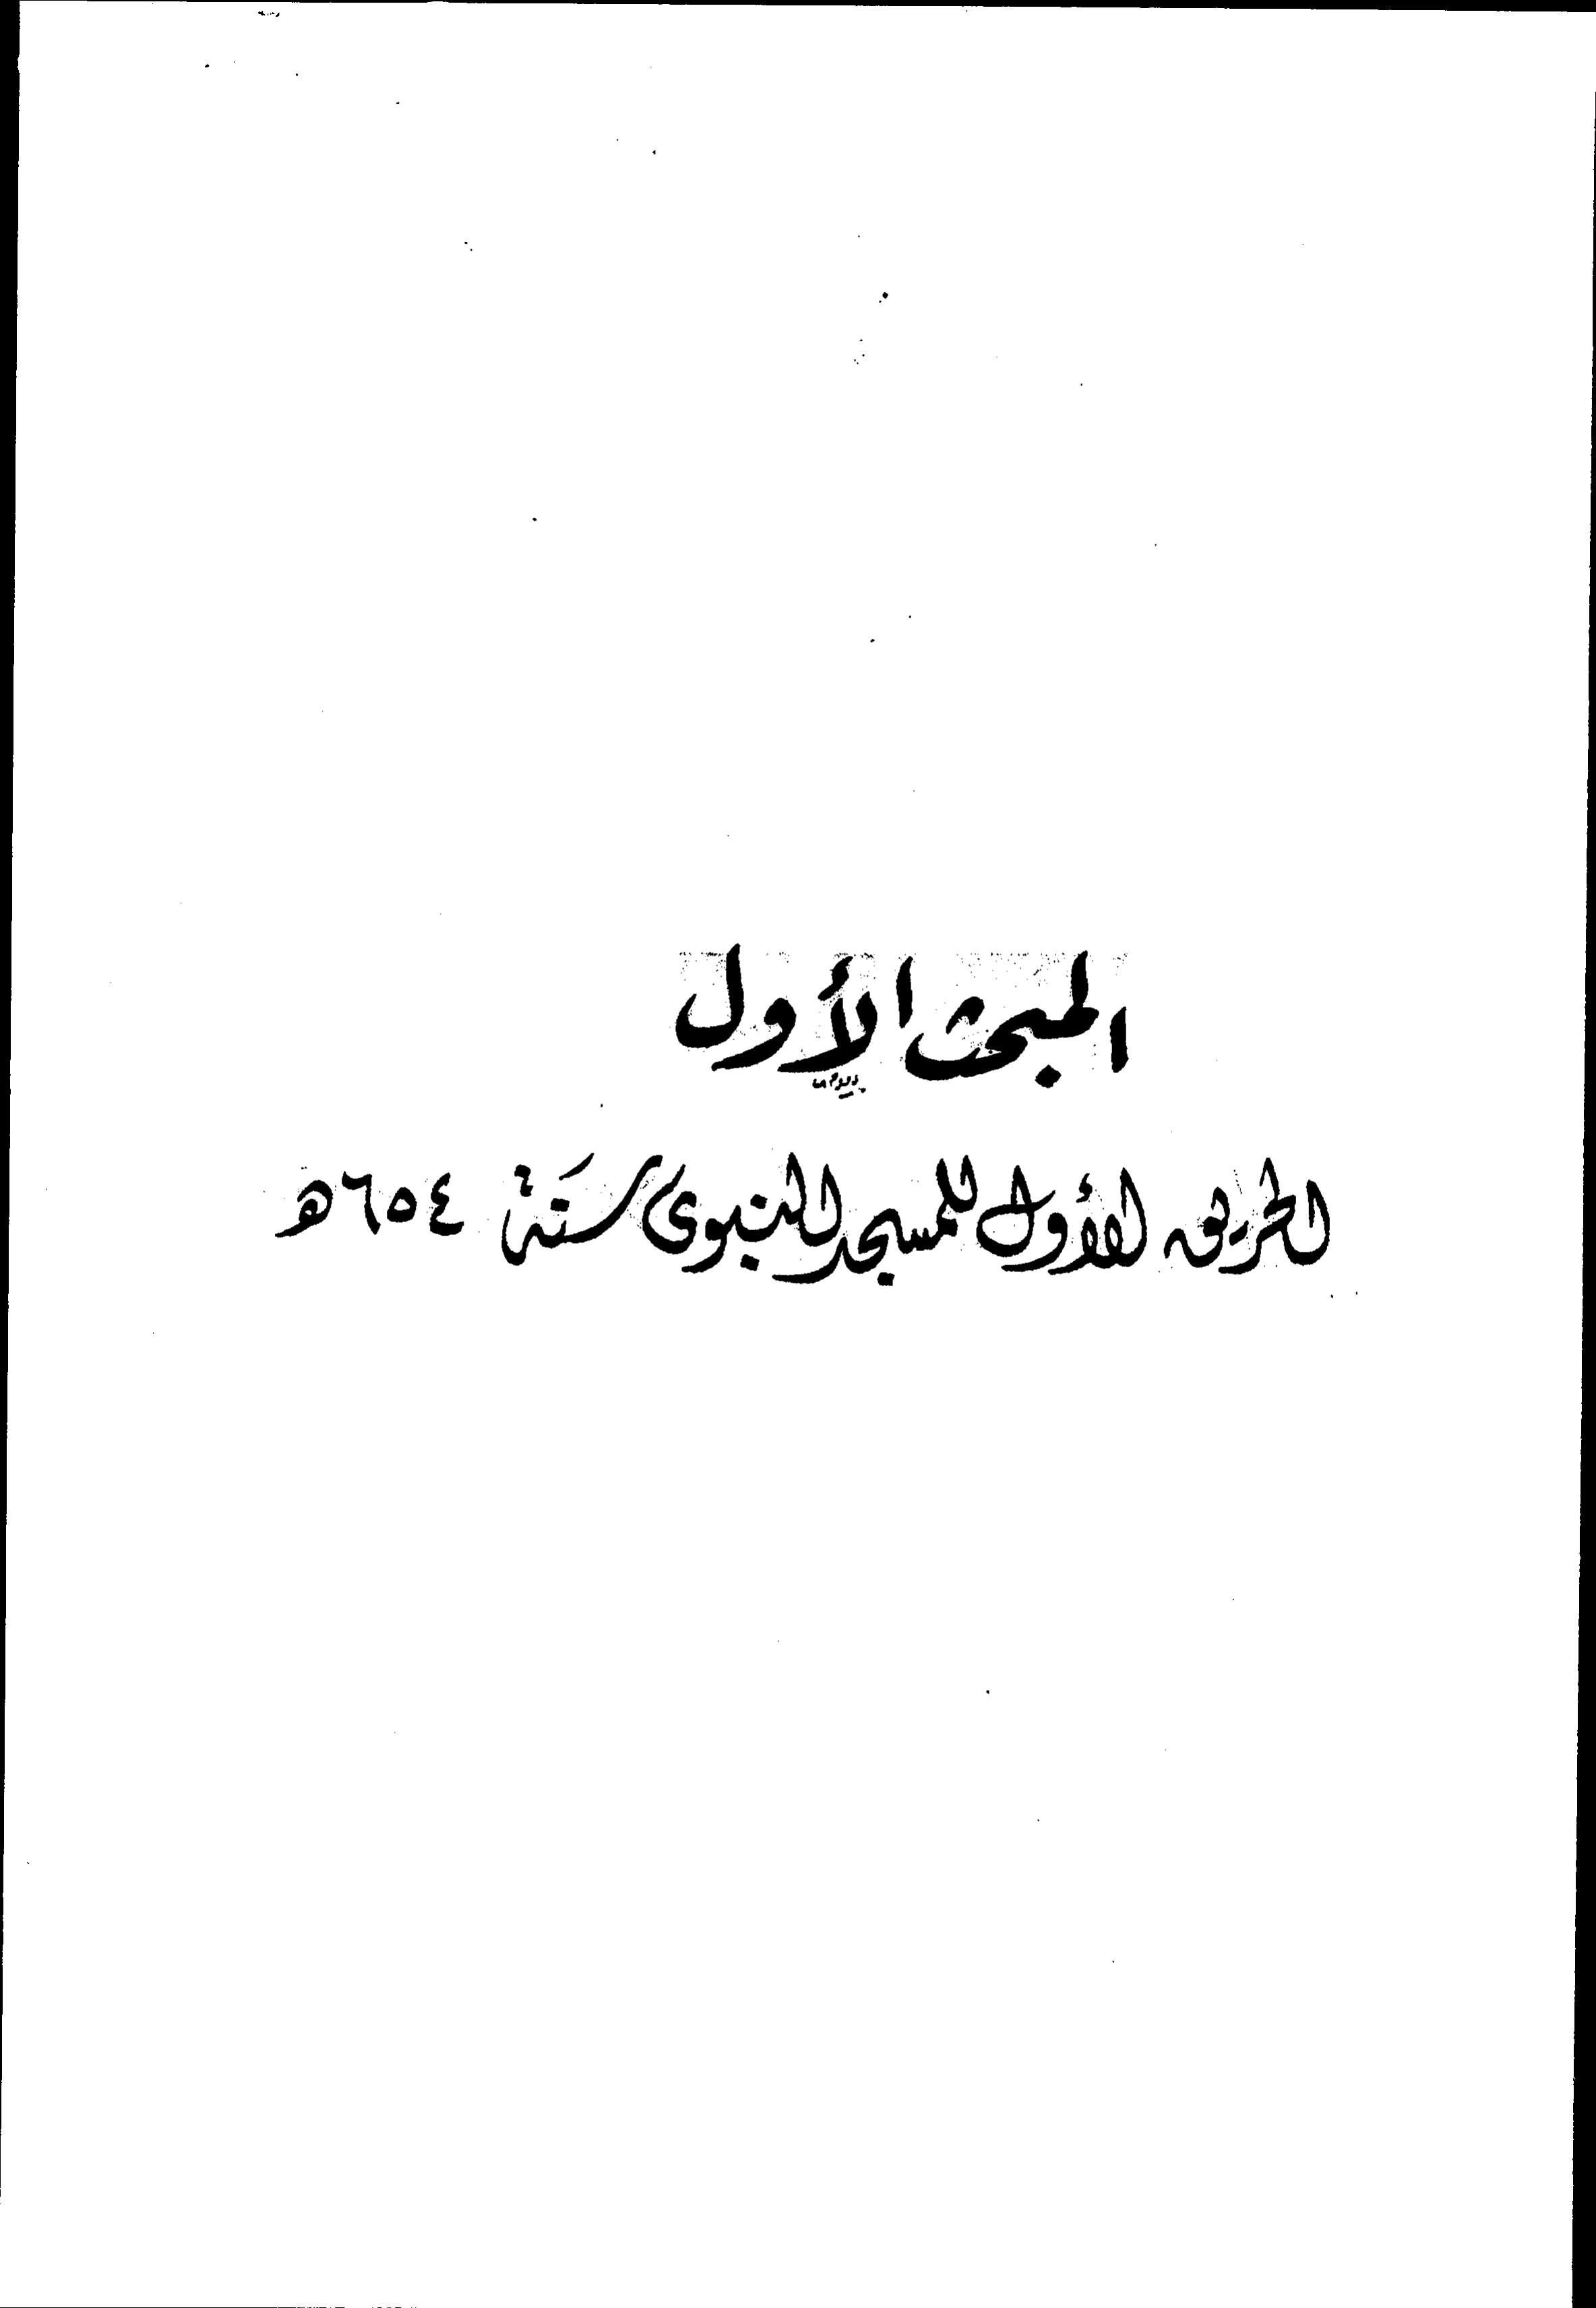 المبحث الأول
الحريق الأول للمسجد النبوى سنة ٦٥٤هـ